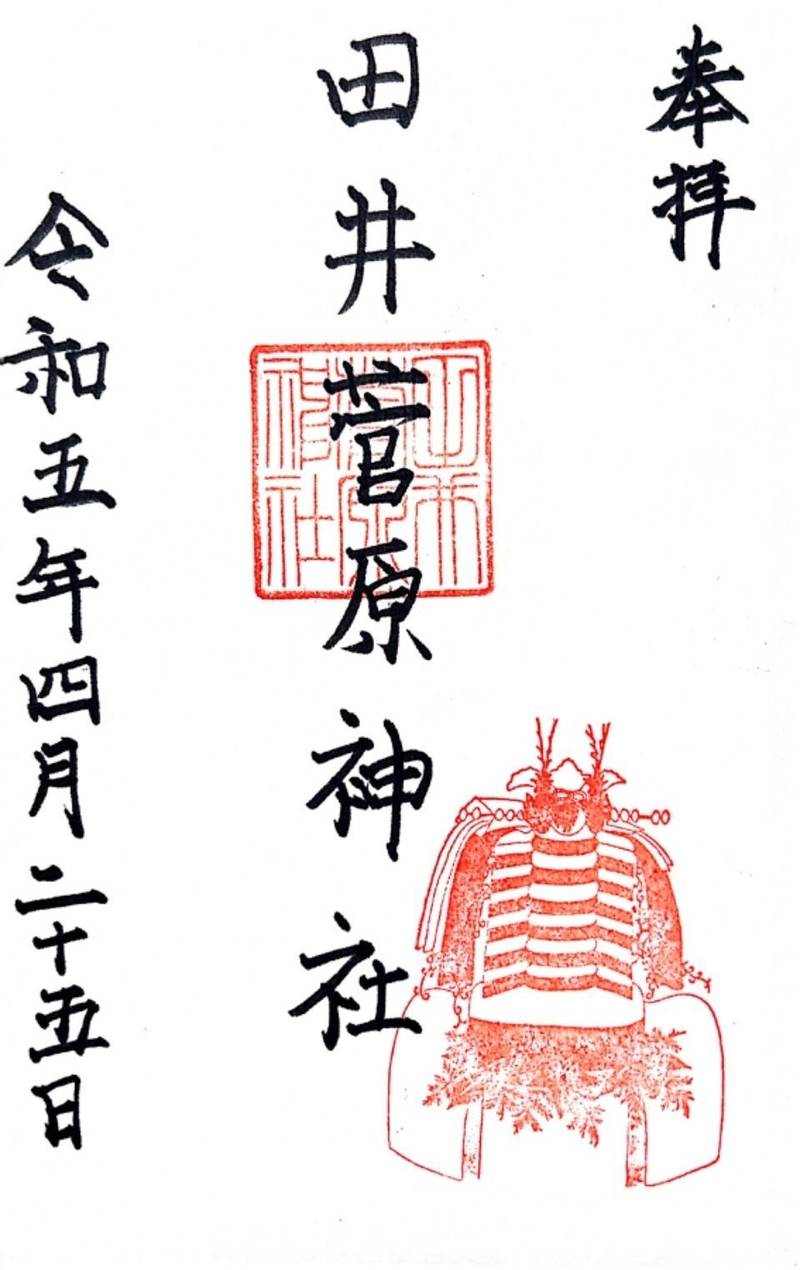 奉拝
田井菅原神社
令和五年四月二十五日